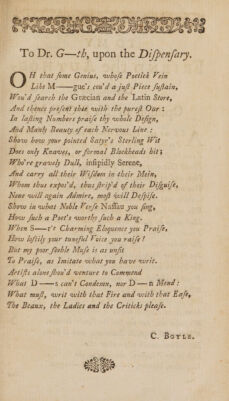 To Dr. G—th, upon the Dispensary.
OH that some Genius, whose Poetick Vein
Like M——gue's cou'd a just Piece sustain,
Wou'd search the Grecian and the Latin Store,
And thence present thee with the purest Oar:
In lasting Numbers praise thy whole Design,
And Manly Beauty of each Nervous Line:
Show how your pointed Satyr's Sterling Wit
Does only Knaves, or formal Blockheads hit;
Who're gravely Dull, insipidly Serene,
And carry all their Wisdom in their Mein,
Whom thus expos'd, thus strip'd of their Disguise,
None will again Admire, most will Despise.
Show in what Noble Verse Nassau you sing,
How such a Poet's worthy such a King.
When S——r's Charming Eloquence you Praise,
How loftily your tuneful Voice you raise!
But my poor feeble Muse is as unfit
To Praise, as Imitate what you have writ.
Artists alone shou'd venture to Commend
What D——s can't Condemn, nor D——n Mend:
What must, writ with that Fire and with that Ease,
The Beaux, the Ladies and the Criticks please.
C. BOYLE.